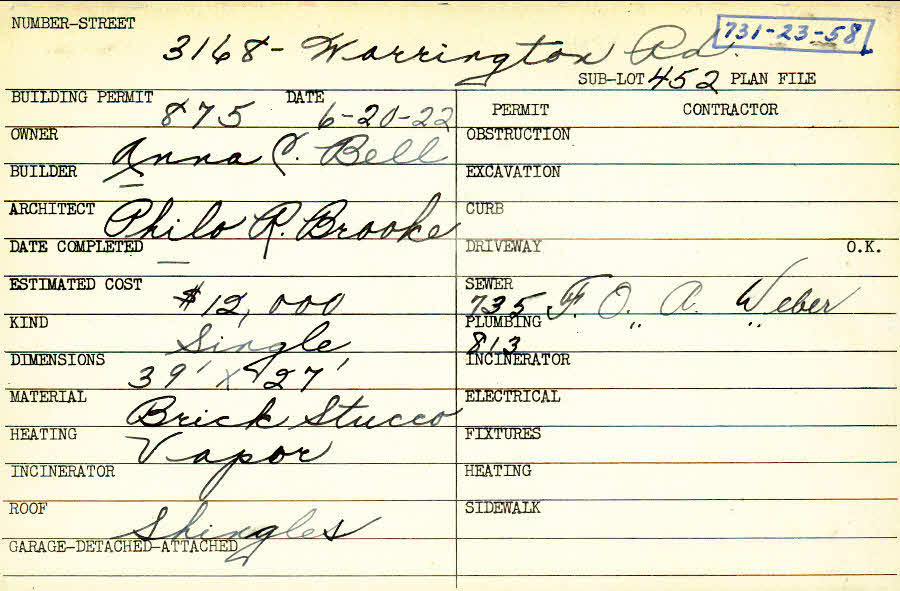 NUMBER-STREET
3168- Warrington Rd. 731-23-58
SUB-LOT 452 PLAN FILE
BUILDING PERMIT 875 DATE 6-20-22
OWNER Anna C. Bell
BUILDER —
ARCHITECT Philo R. Brooke
DATE COMPLETED —
ESTIMATED COST $12,000
KIND Single
DIMENSIONS 39' x 27'
MATERIAL Brick Stucco
HEATING Vapor
INCINERATOR
ROOF Shingles
GARAGE-DETACHED-ATTACHED
PERMIT CONTRACTOR
OBSTRUCTION
EXCAVATION
CURB
DRIVEWAY O.K.
SEWER 735 F. O. A. Weber
PLUMBING 813 " "
INCINERATOR
ELECTRICAL
FIXTURES
HEATING
SIDEWALK